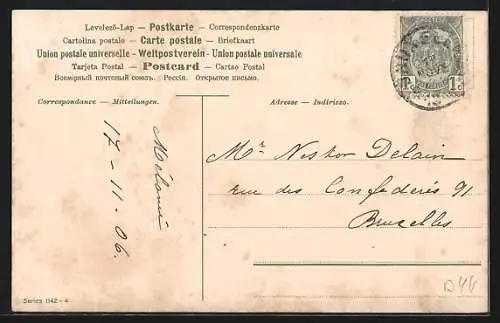 Levelező-Lap — Postkarte — Correspondenzkarte
Cartolina postale — Carte postale — Briefkaart
Union postale universelle - Weltpostverein - Union postale universale
Tarjeta Postal — Postcard — Cartao Postal
Всемірный почтовый союзъ. Россія. Открытое письмо.
Correspondance — Mitteilungen.
Adresse — Indirizzo.
Mélanie
17-11-06.
Mr Nestor Delain
rue des Confédérés 91
Bruxelles
Series 1142 - 4
D46